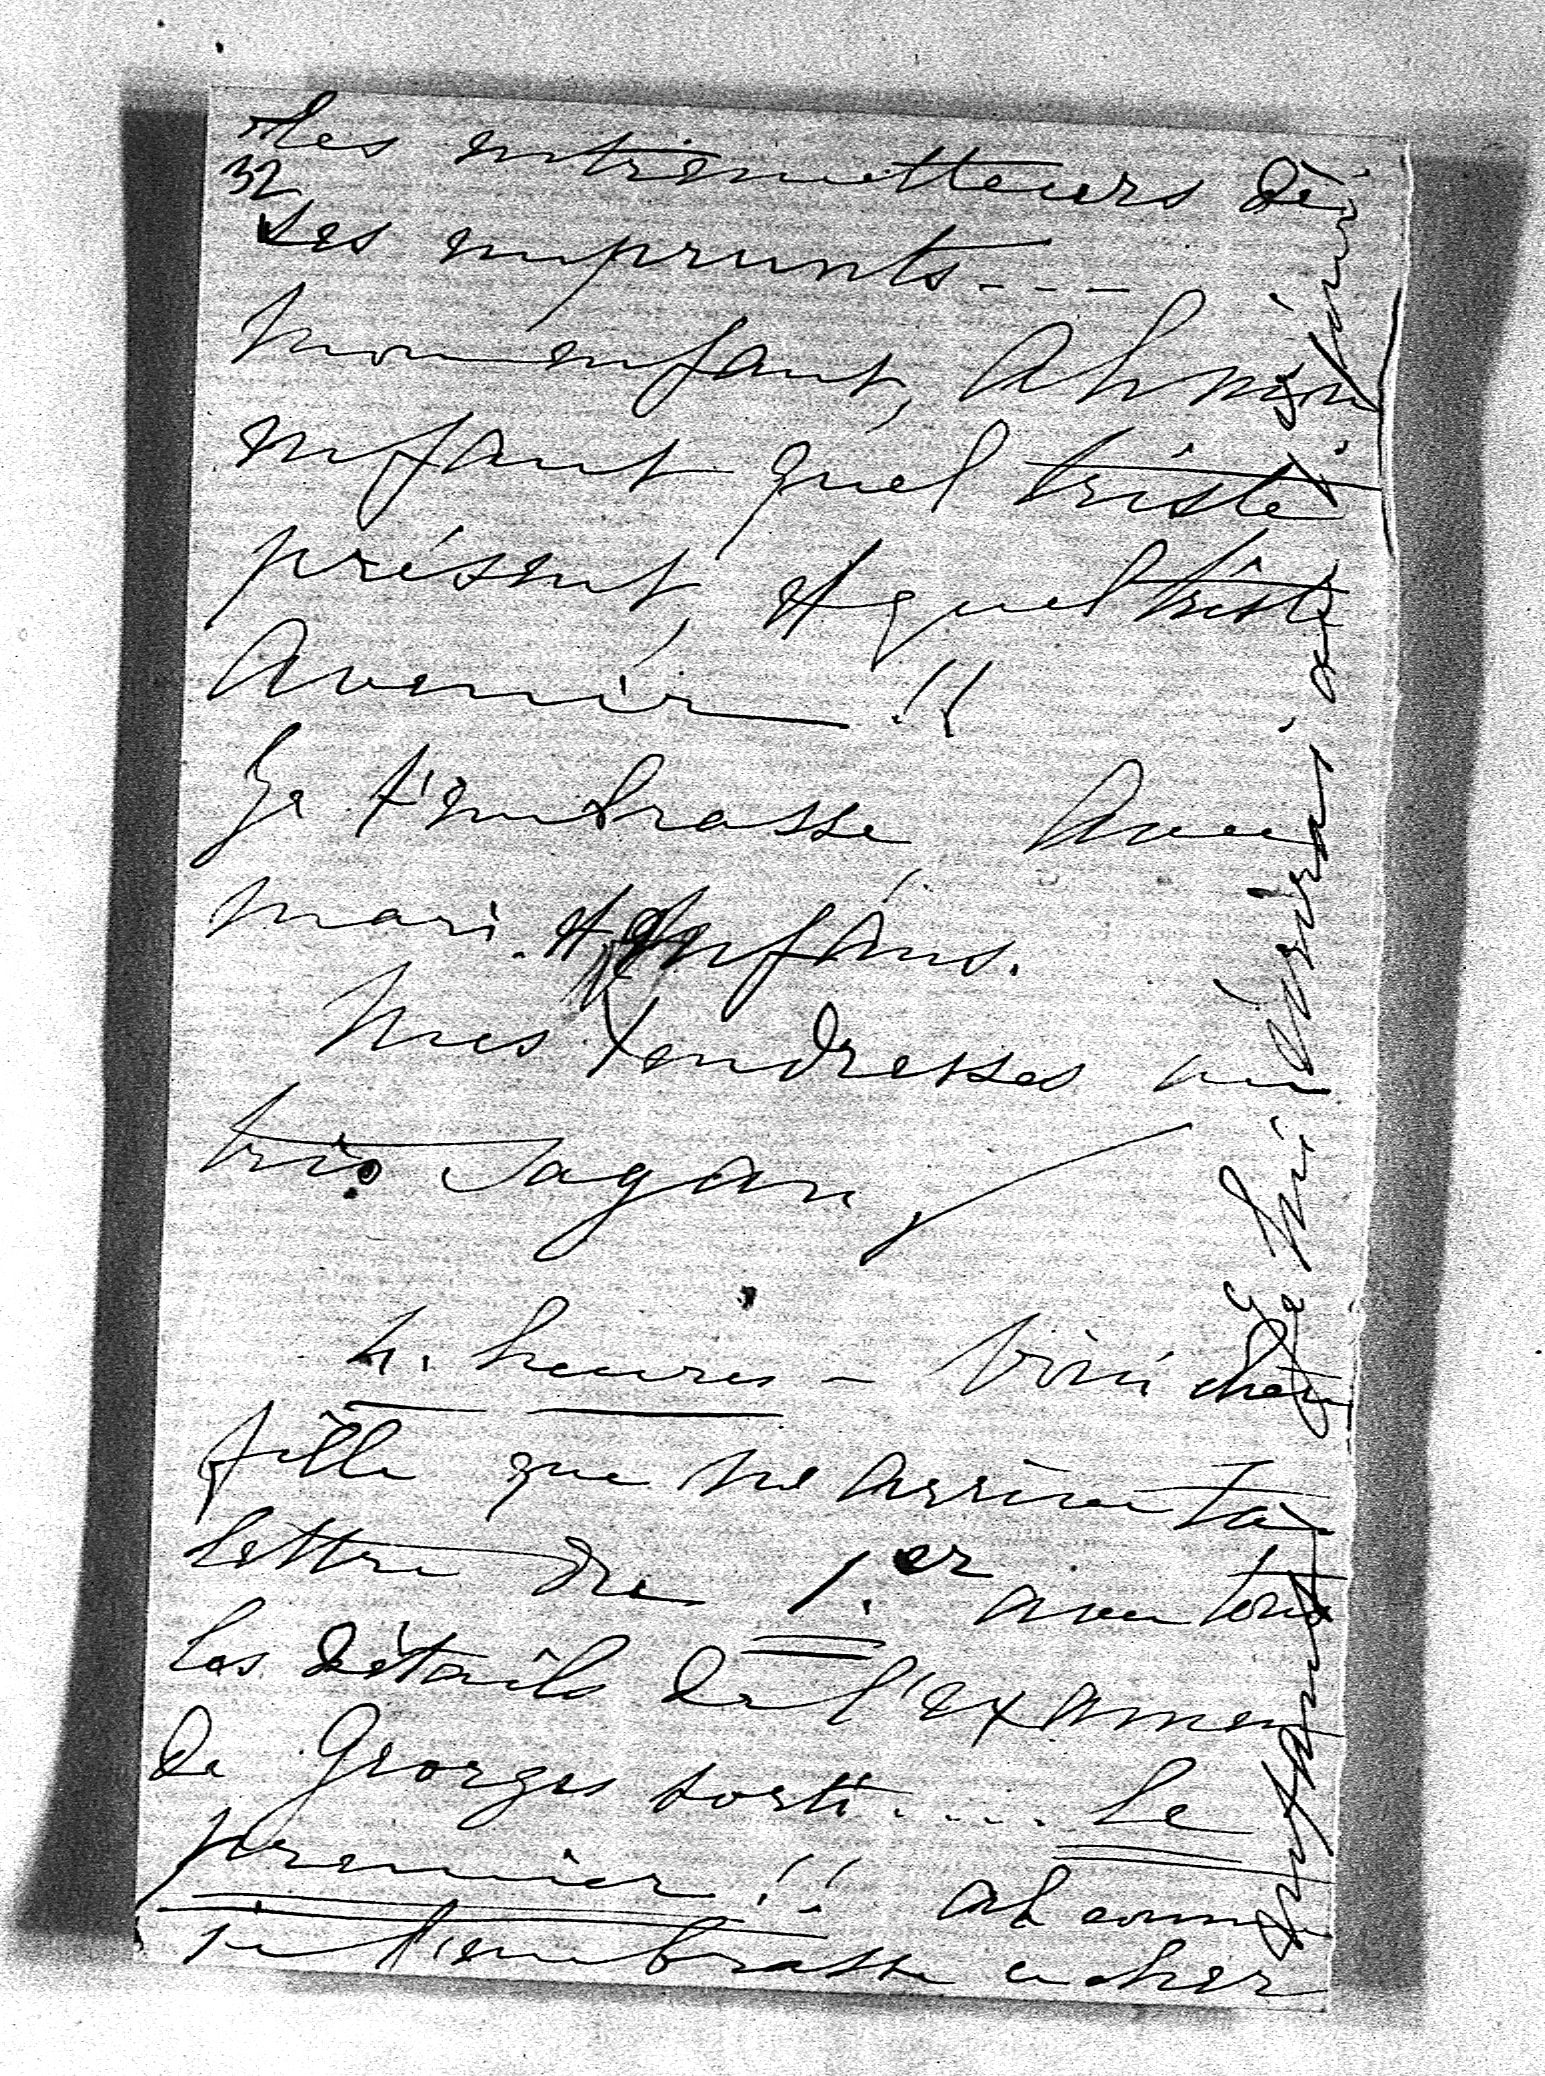 des entremetteurs de
32
ses emprunts - - -
mon enfant, Ah mon
enfant quel triste
présent, et quel triste
Avenir — !!
Je t'embrasse, Avec
mari et enfans.
Mes tendresses au
trio Sagan /
4. heures - Voici chère
fille que me arrive ta
lettre du 1.er avec tous
les détails de l'examen
de Georges sorti .... le
premier !! ah comme
je t'embrasse ce cher
enfant
Je lui écrirai